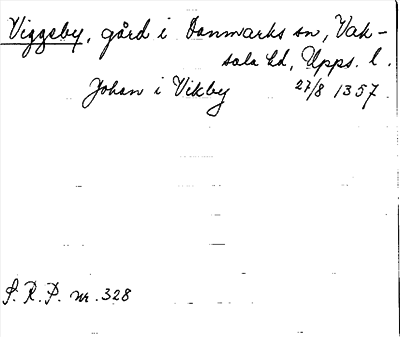 Viggeby, gård i Danmarks sn, Vak-
sala hd, Upps. l.
Johan i Vikby 27/8 1357.
S.R.P. nr. 328